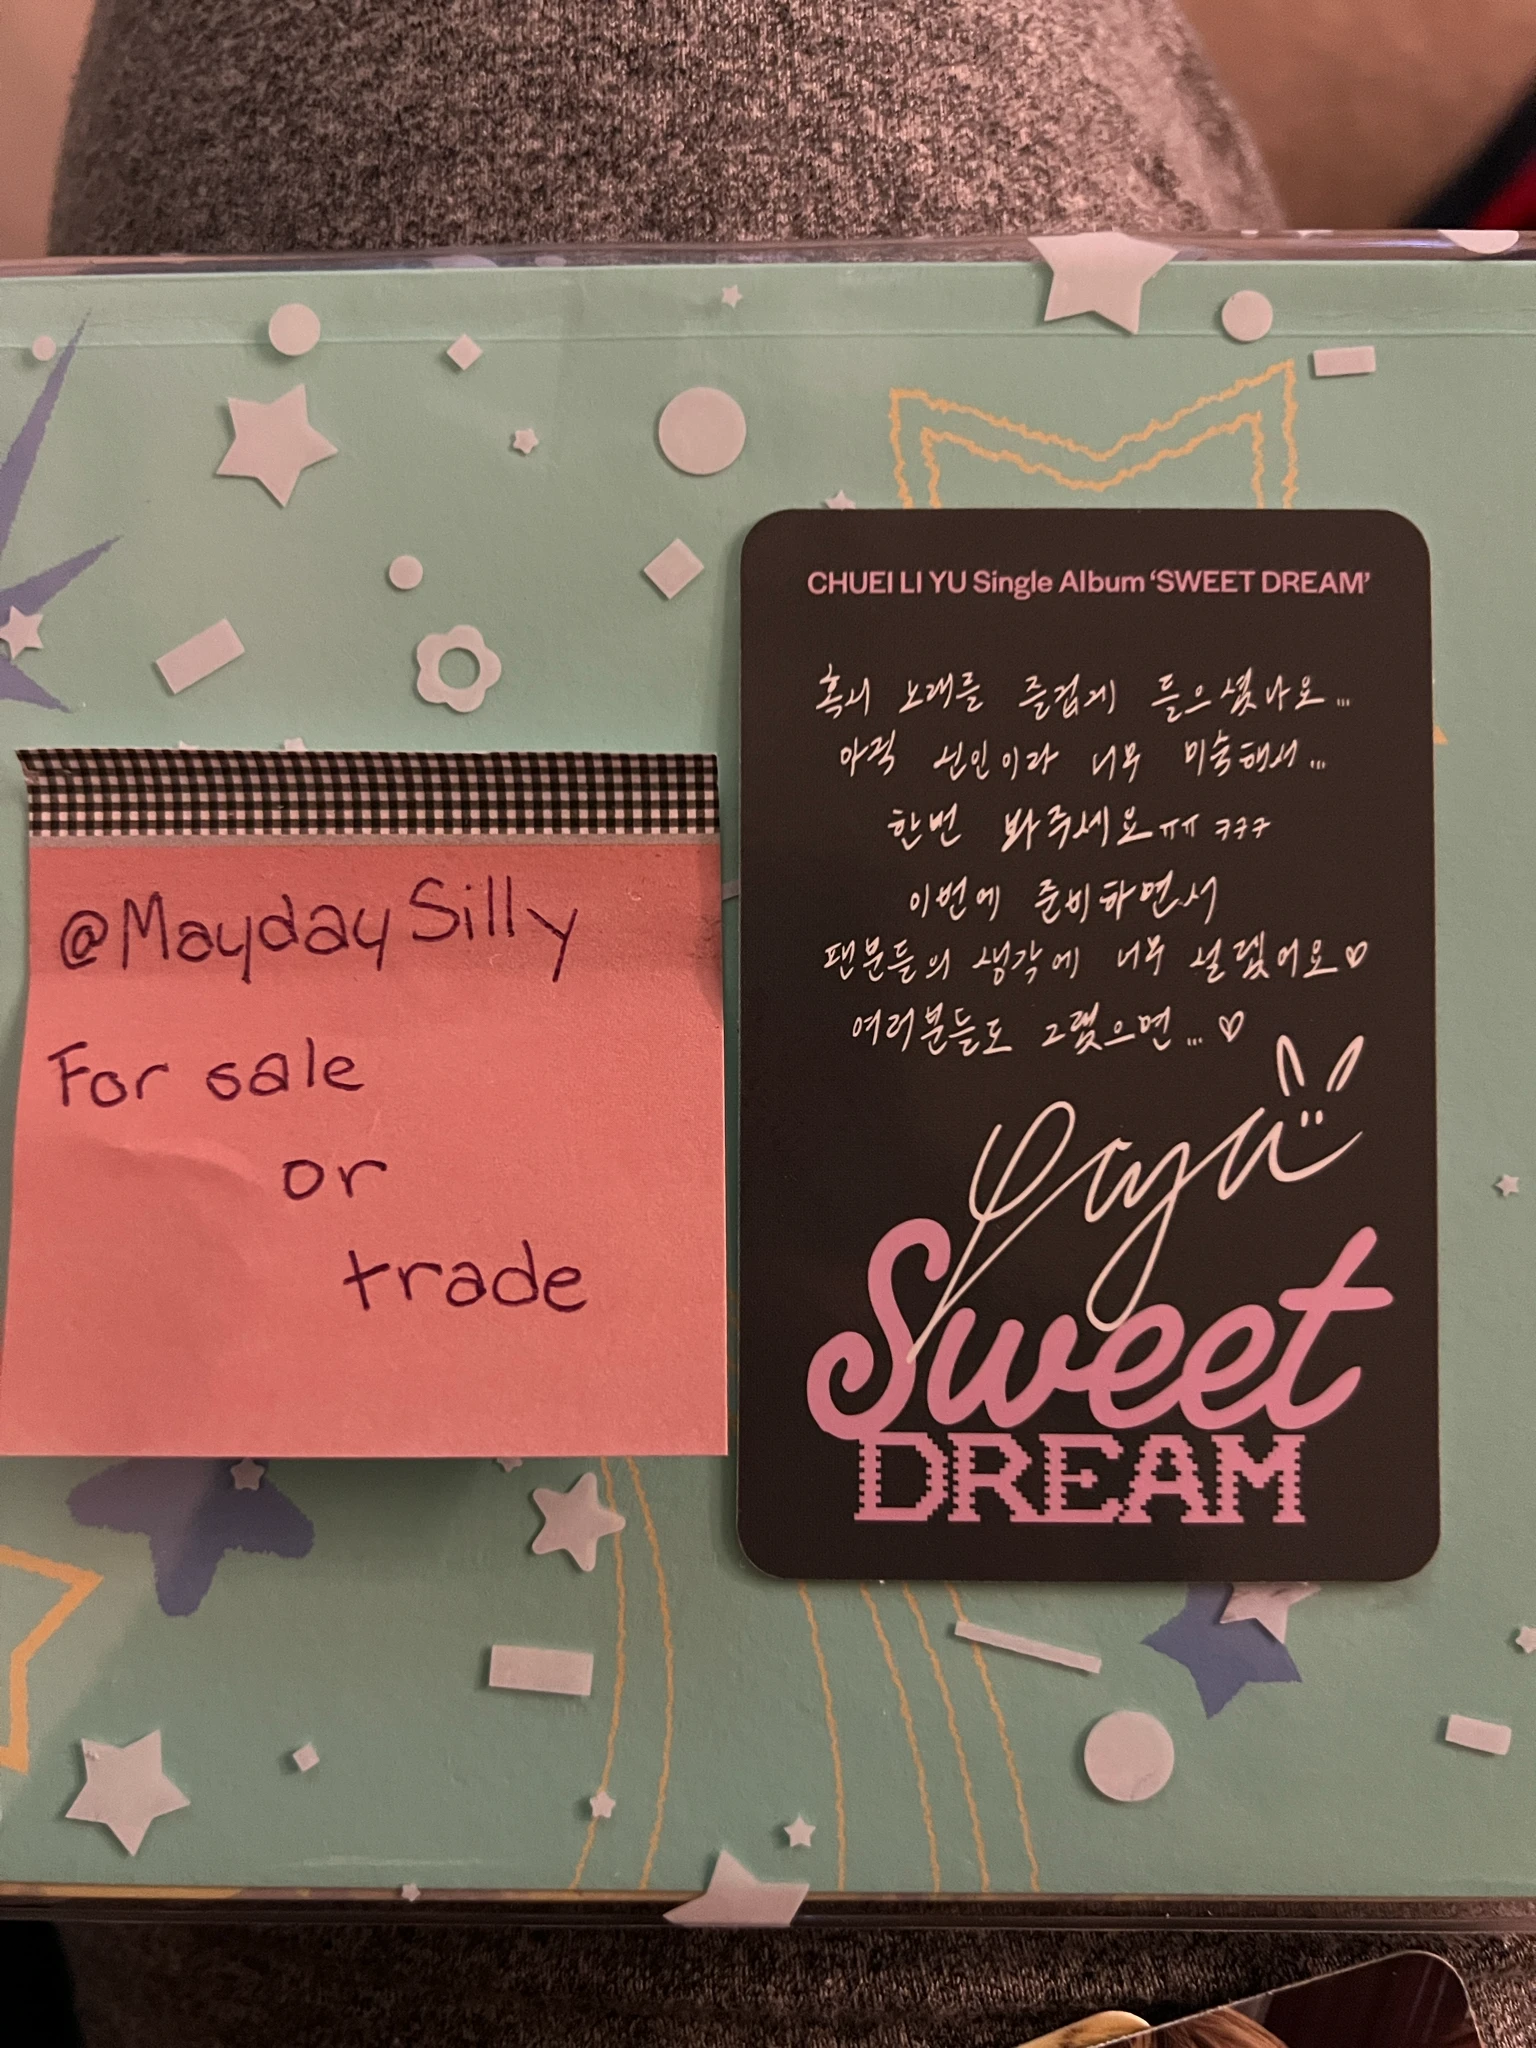 @MaydaySilly
For sale
or
trade
CHUEI LI YU Single Album ‘SWEET DREAM’
혹시 노래를 즐겁게 들으셨나요...
아직 신인이라 너무 미숙해서...
한번 봐주세요ㅠㅠ ㅋㅋㅋ
이번에 준비하면서
팬분들의 생각에 너무 설렜어요♡
여러분들도 그랬으면...♡
Yuyu
Sweet
DREAM